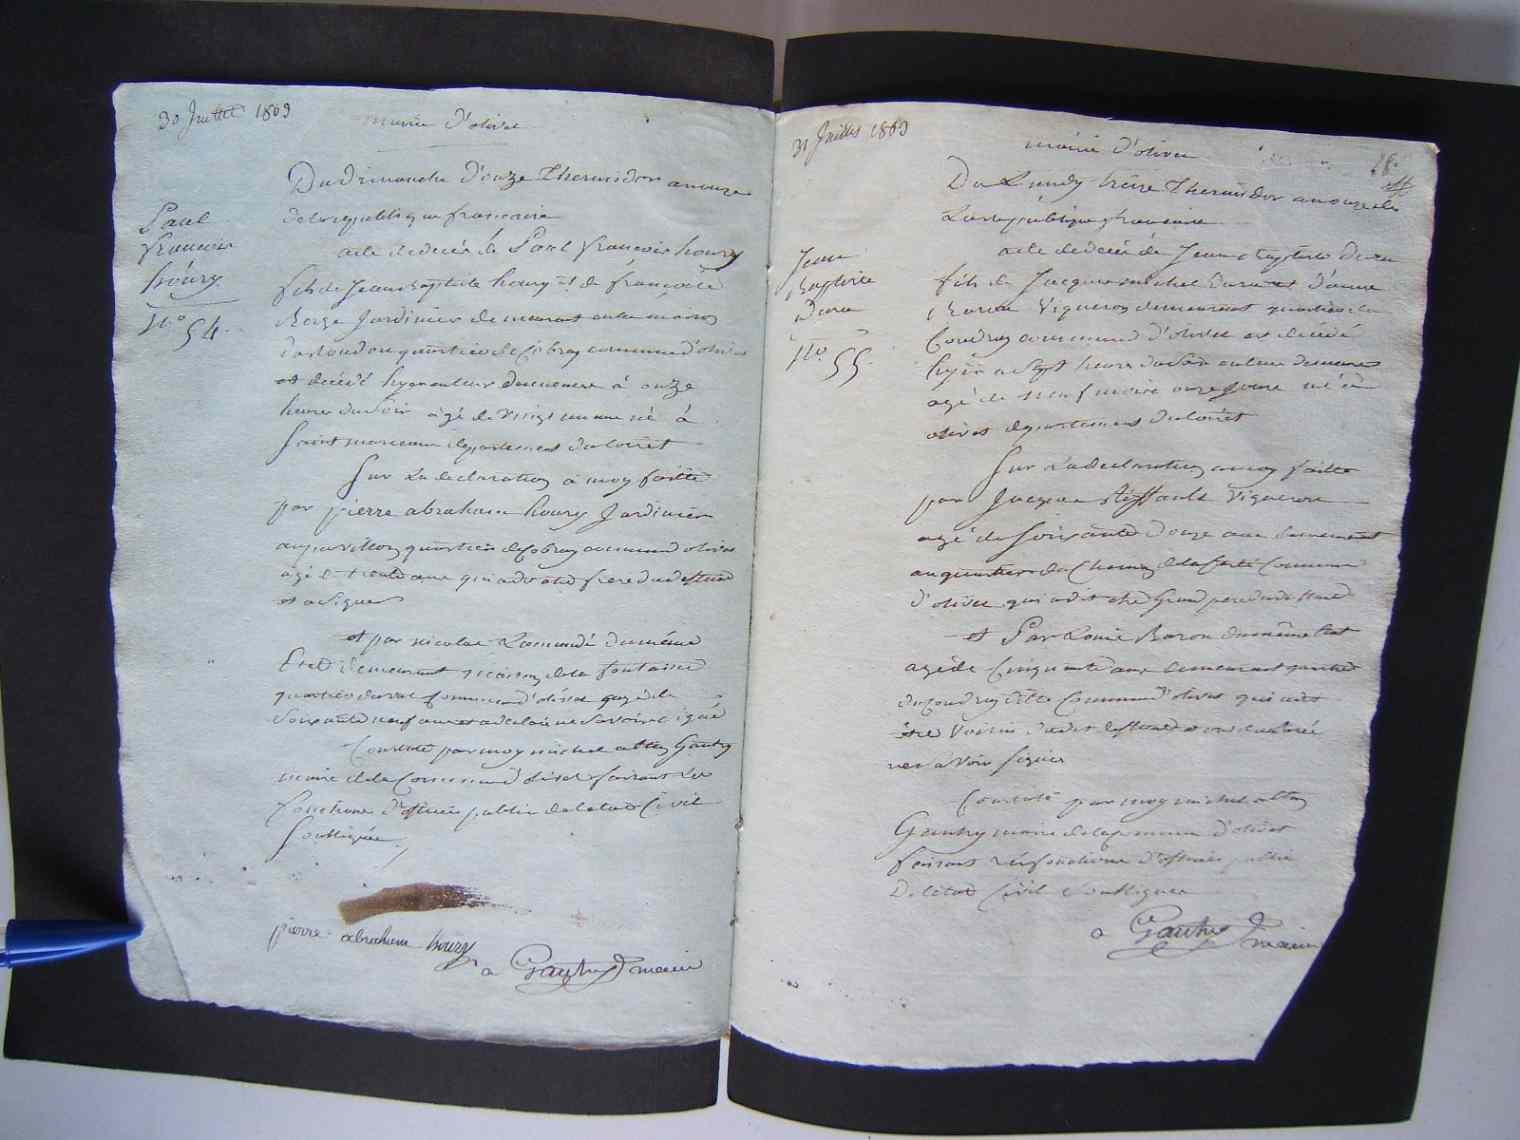 30 Juillet 1803
mairie d'olivet
Du dimanche douze Thermidor an onze
de la republique francoise
Paul
francois
houry
N.o 54.
acte de decés de Paul francois houry
fils de Jean baptiste houry et de francoise
Jardinier demeurant en la maison
quartier de commune d'olivet
est decédé hyer en leur demeure à onze
heures du soir agé de vingt un ans né à
Saint marceau departement du loiret
Sur la declaration à moy faitte
par pierre abraham houry Jardinier
quartier de commune d'olivet
agé de trente ans qui a dit etre frere du deffunt
et a signer
et par nicolas du même
Etat demeurant de la fontaine
quartier du val commune d'olivet agé de
Soixante neuf ans et a declaré ne savoir signé
Constaté par moy michel altin Gautry
maire de la Commune d'olivet faisant les
fonctions d'officier public de l'etat Civil
Soussignée
pierre abraham houry
a Gautry maire
31 Juillet 1803
mairie d'olivet
28.
Du Lundy treize Thermidor an onze de
La republique francoise
Jean
Baptiste
Darea
N.o 55.
acte de decés de Jean baptiste
fils de Jacques michel et d'anne
Baron Vigneron demeurant quartier du
Coudray commune d'olivet est decédé
hyer a Sept heures du Soir en leur demeure
agé de neuf mois onze jours né à
olivet departement du loiret
Sur la declaration a moy faitte
par Jacques Vigneron
agé de Soixante douze ans demeurant
au quartier du Chemin de la ferté Commune
d'olivet qui a dit etre Grand pere du deffunt
et Par Louis Baron du même Etat
agé de Cinquante ans demeurant quartier
du Coudray ditte Commune d'olivet qui a dit
être Voisin dudit deffunt et ont declaré
ne savoir signer
Constaté par moy michel altin
Gautry maire de la commune d'olivet
faisant les fonctions d'officier public
De l'etat Civil Soussigner
a Gautry maire